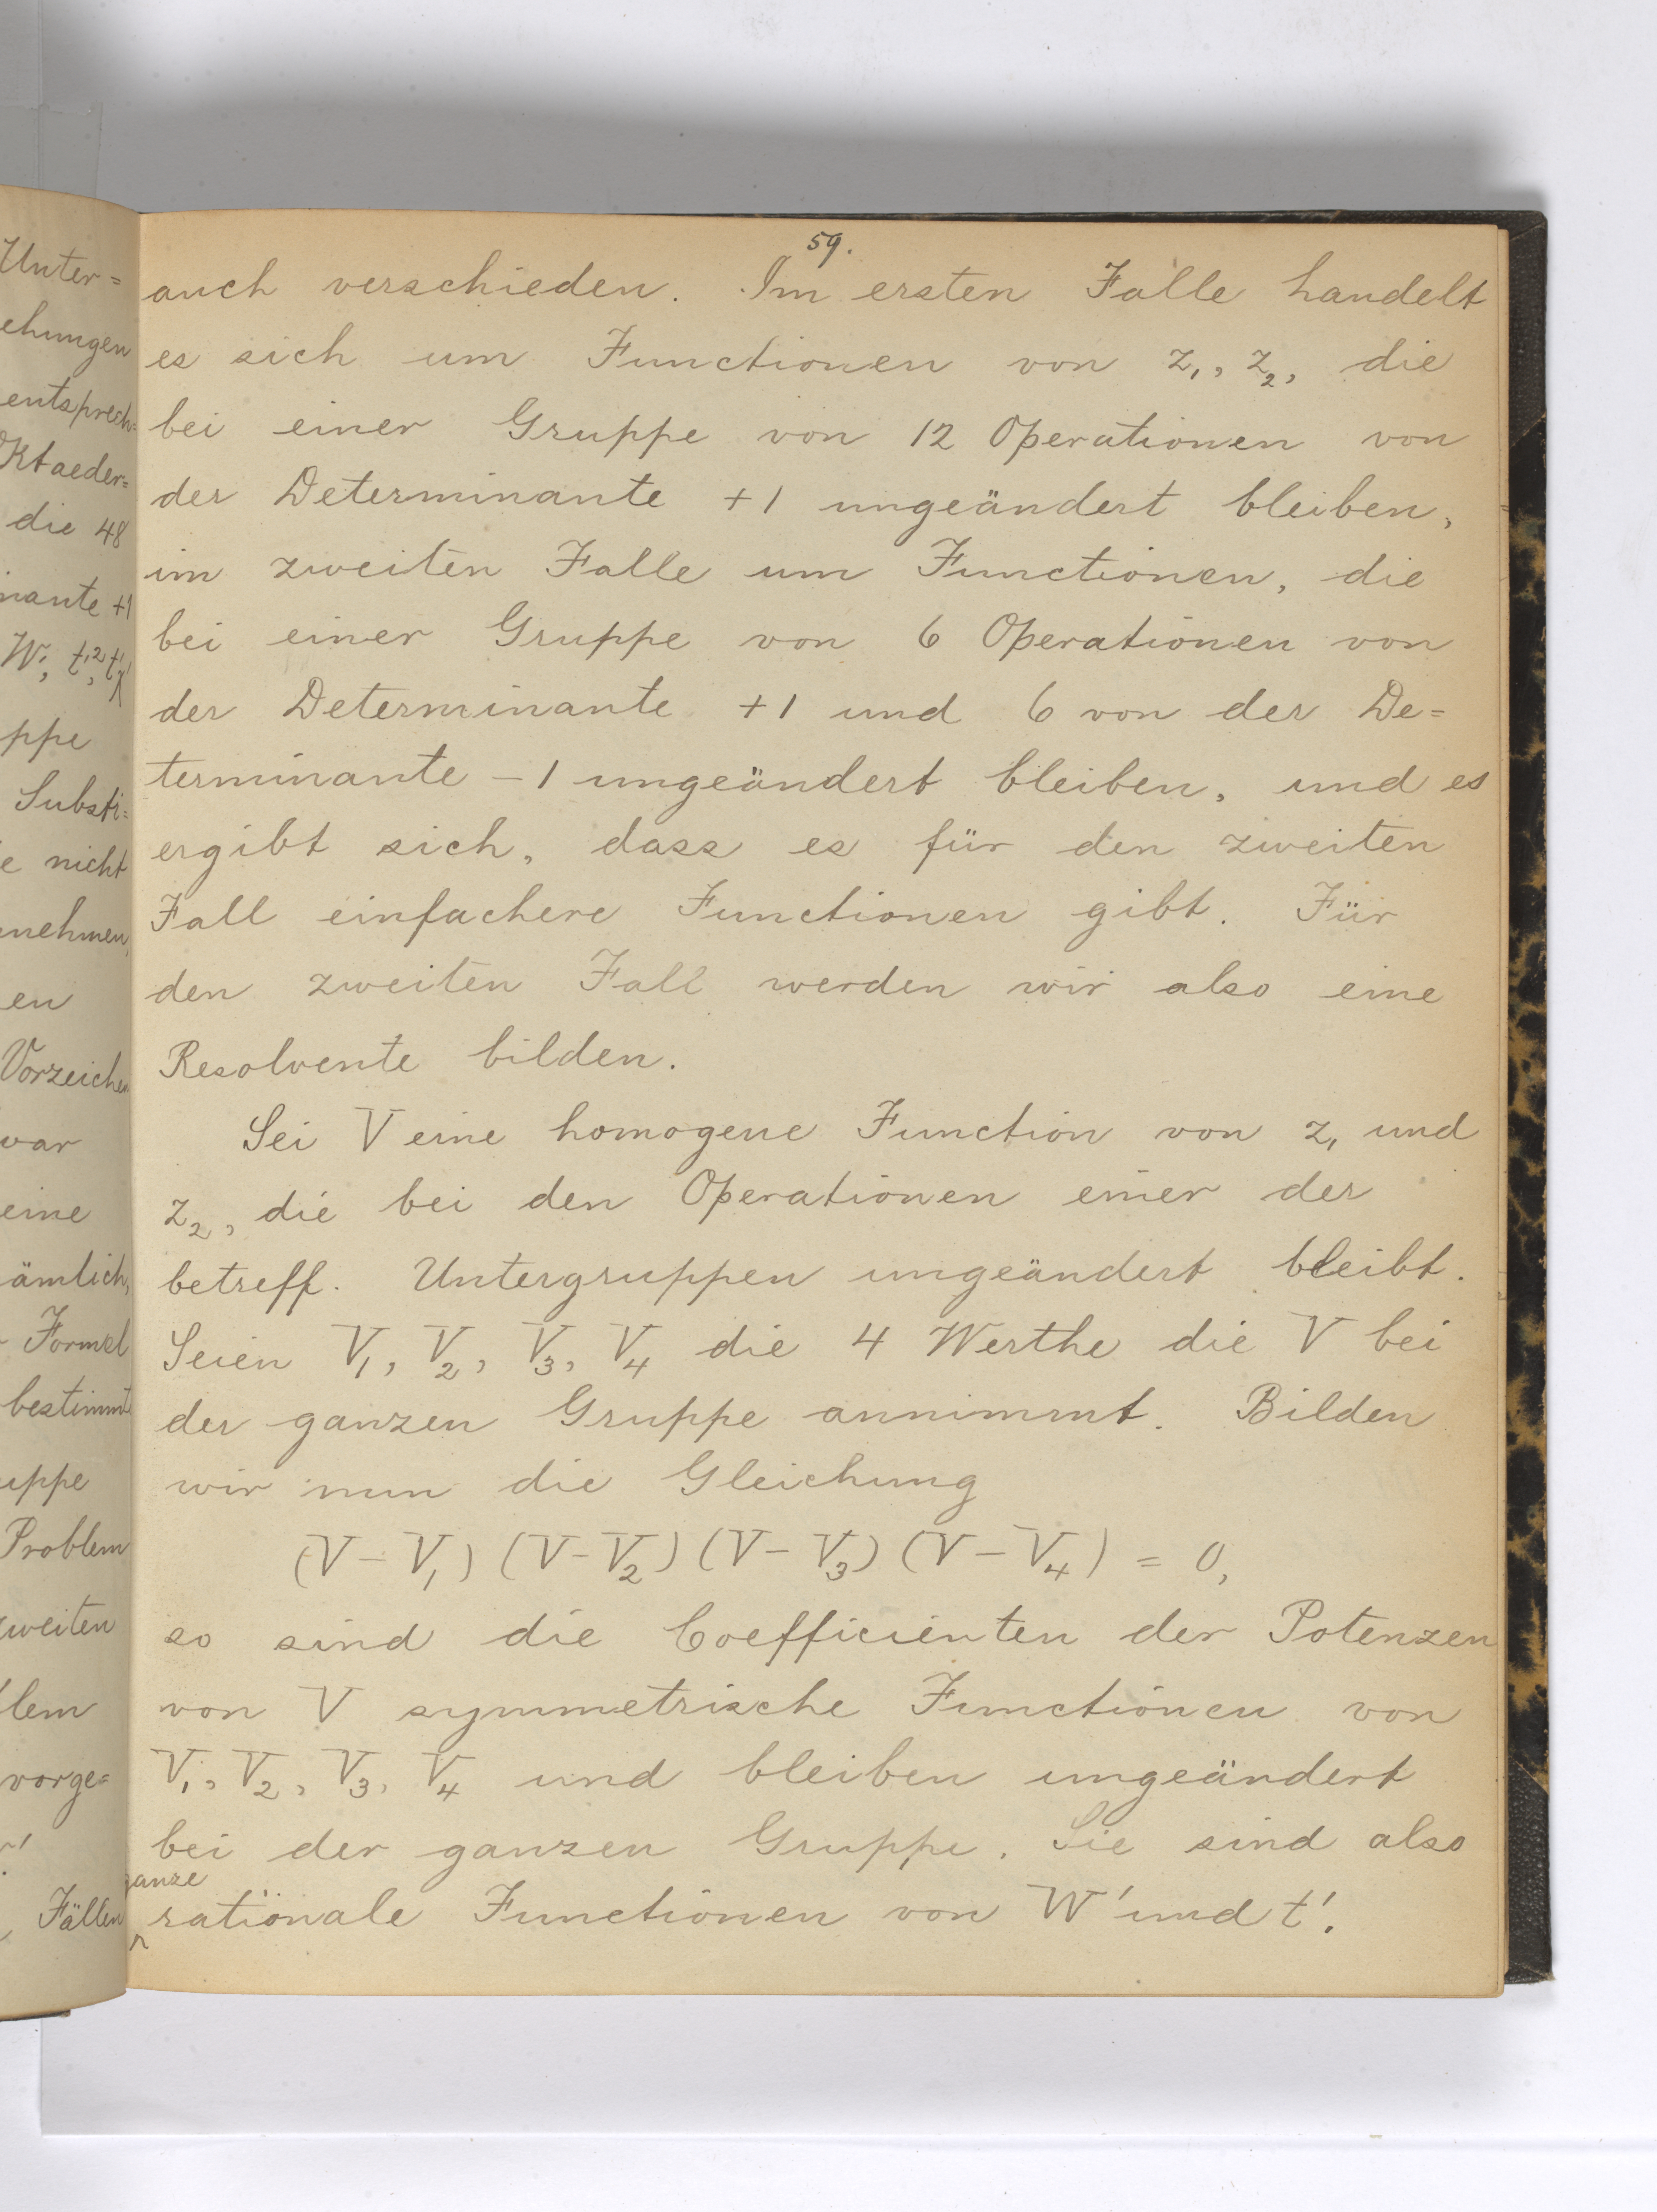 Unter=
ehungen
entsprech=
Oktaeder=
die 48
inante +1
ppe
Substi=
e nicht
nehmen,
en
Vorzeichen
war
eine
ämlich,
Formel
bestimmt
uppe
Problem
zweiten
lem
vorge=
Fällen
59.
auch verschieden. Im ersten Falle handelt
es sich um Functionen von z₁, z₂, die
bei einer Gruppe von 12 Operationen von
der Determinante +1 ungeändert bleiben,
im zweiten Falle um Functionen, die
bei einer Gruppe von 6 Operationen von
der Determinante +1 und 6 von der De=
terminante -1 ungeändert bleiben, und es
ergibt sich, dass es für den zweiten
Fall einfachere Functionen gibt. Für
den zweiten Fall werden wir also eine
Resolvente bilden.
Sei V eine homogene Function von z₁ und
z₂, die bei den Operationen einer der
betreff. Untergruppen ungeändert bleibt.
Seien V₁, V₂, V₃, V₄ die 4 Werthe die V bei
der ganzen Gruppe annimmt. Bilden
wir nun die Gleichung
(V - V₁) (V - V₂) (V - V₃) (V - V₄) = 0,
so sind die Coefficienten der Potenzen
von V symmetrische Functionen von
V₁, V₂, V₃, V₄ und bleiben ungeändert
bei der ganzen Gruppe. Sie sind also
ganze
rationale Functionen von W' und t'.